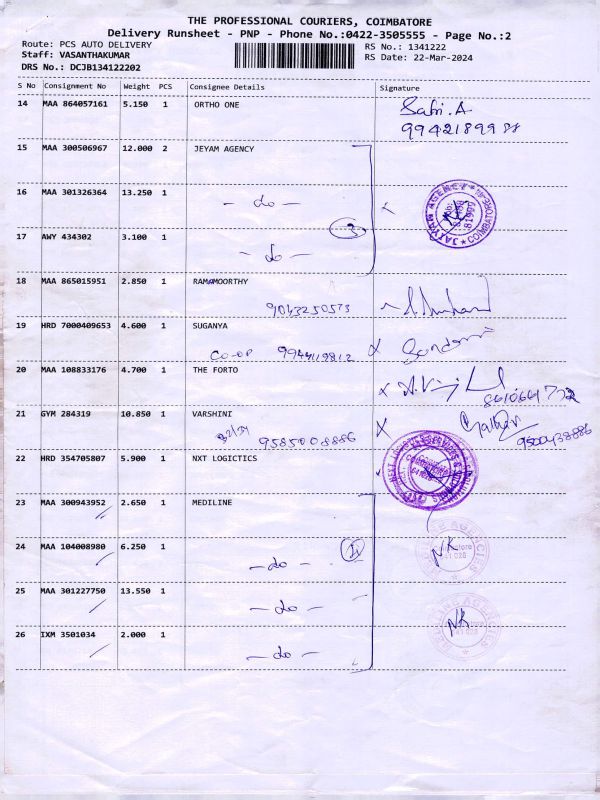 THE PROFESSIONAL COURIERS, COIMBATORE
Delivery Runsheet - PNP - Phone No.:0422-3505555 - Page No.:2
Route: PCS AUTO DELIVERY
RS No.: 1341222
Staff: VASANTHAKUMAR
RS Date: 22-Mar-2024
DRS No.: DCJB134122202
S No Consignment No Weight PCS Consignee Details Signature
14 MAA 864057161 5.150 1 ORTHO ONE
15 MAA 300506967 12.000 2 JEYAM AGENCY
16 MAA 301326364 13.250 1
- do -
3
17 AWY 434302 3.100 1
- do -
18 MAA 865015951 2.850 1 RAMAMOORTHY
9043250573
19 HRD 7000409653 4.600 1 SUGANYA
CO-OP 9944119812
20 MAA 108833176 4.700 1 THE FORTO
21 GYM 284319 10.850 1 VARSHINI
9585008886
9500438886
22 HRD 354705807 5.900 1 NXT LOGICTICS
23 MAA 300943952 2.650 1 MEDILINE
24 MAA 104008980 6.250 1
- do -
NK
25 MAA 301227750 13.550 1
- do -
NK
26 IXM 3501034 2.000 1
- do -